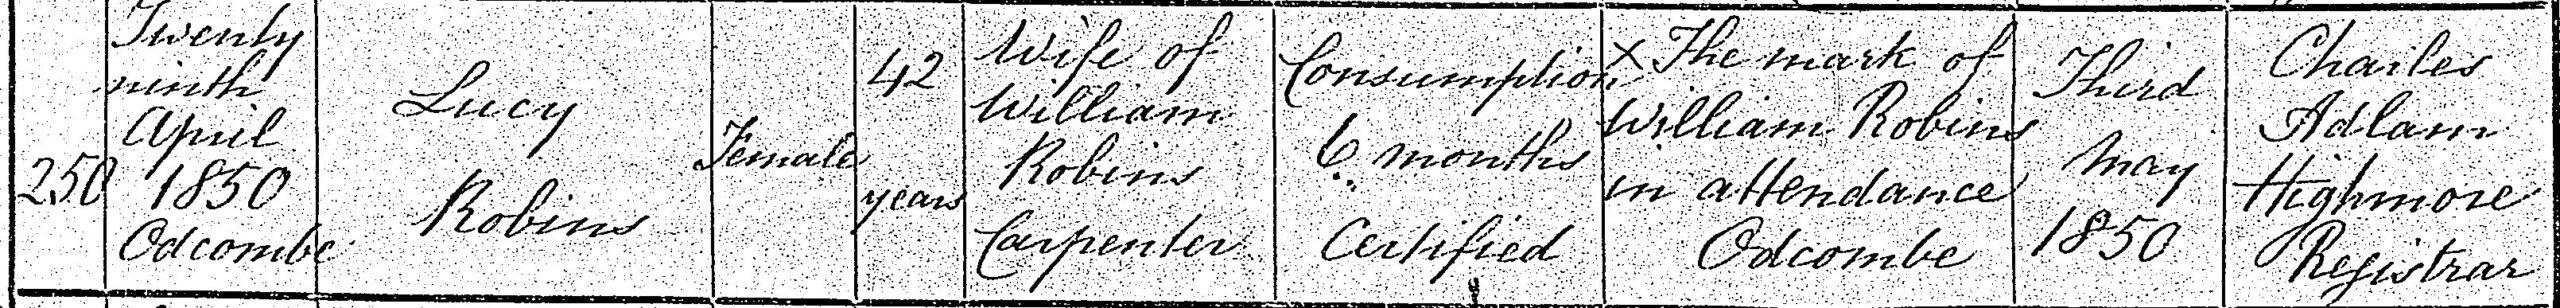 250
Twenty
ninth
April
1850
Odcombe
Lucy
Robins
Female
42
years
Wife of
William
Robins
Carpenter
Consumption
6 months
Certified
X The mark of
William Robins
in attendance
Odcombe
Third
May
1850
Charles
Adlam
Highmore
Registrar